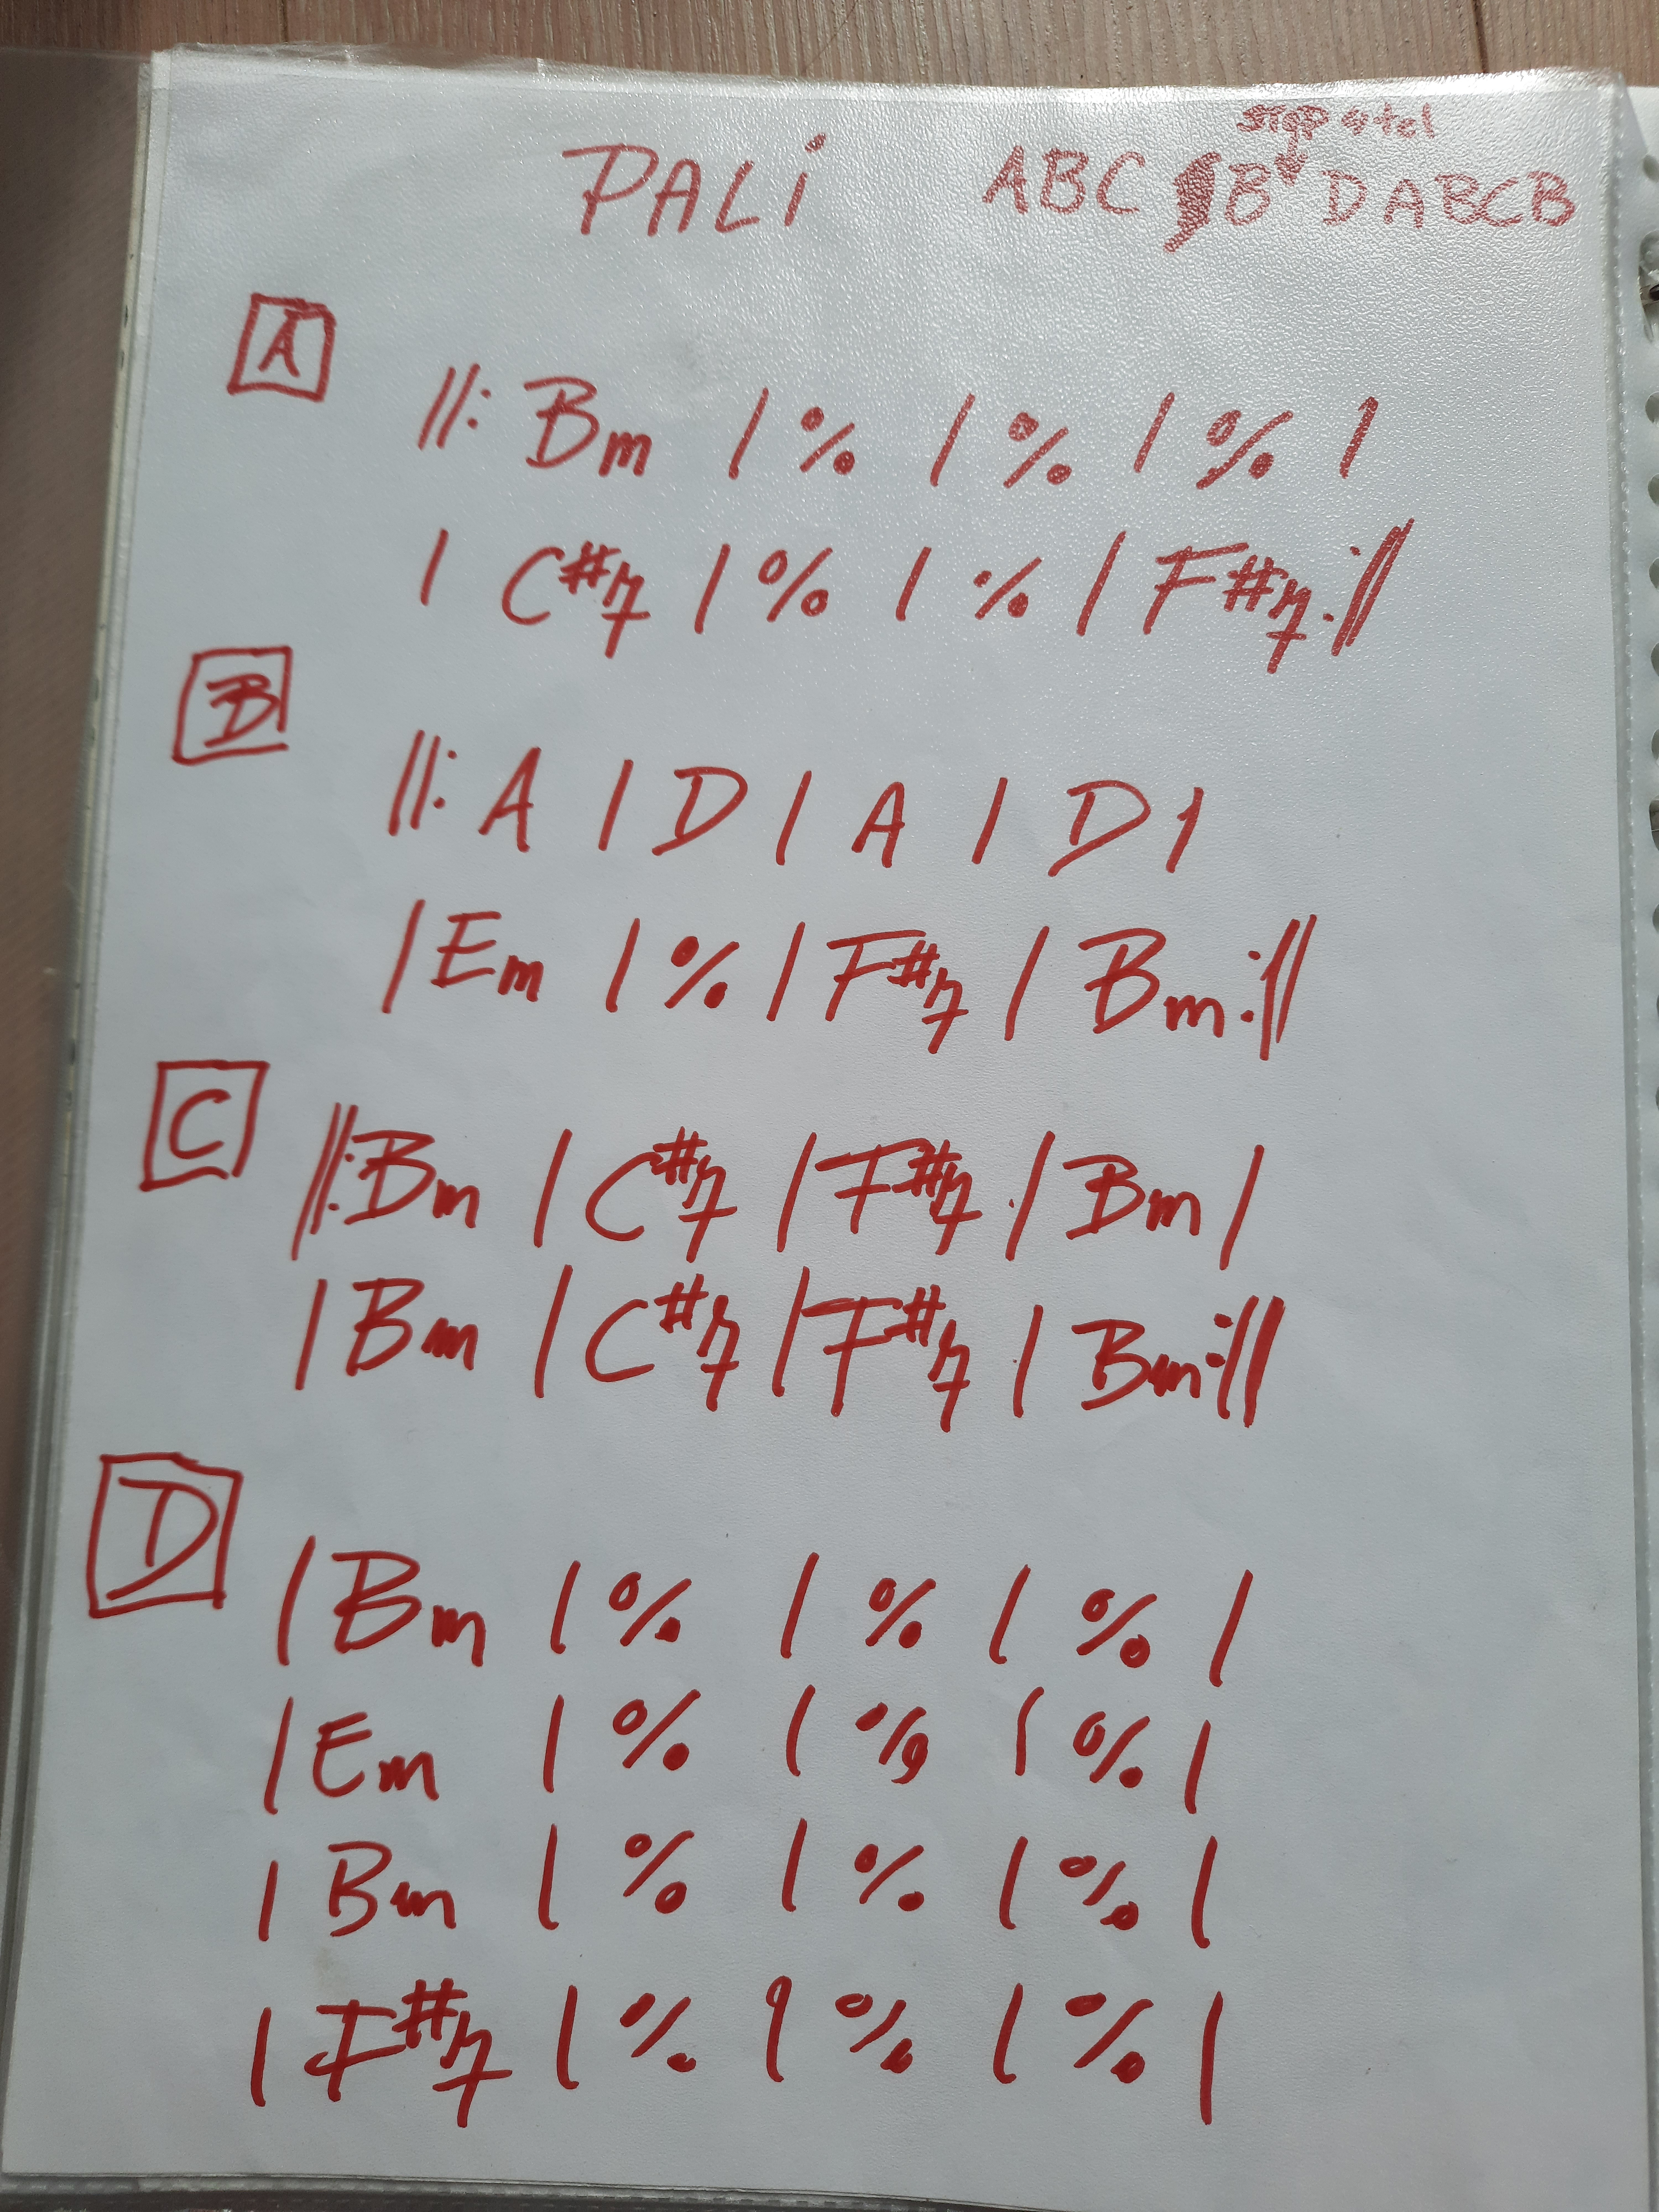 stop 4 tel
PALi ABC B D ABCB
A
||: Bm | % | % | % |
| C#7 | % | % | F#7 :||
B
||: A | D | A | D |
| Em | % | F#7 | Bm :||
C
||: Bm | C#7 | F#7 | Bm |
| Bm | C#7 | F#7 | Bm :||
D
| Bm | % | % | % |
| Em | % | % | % |
| Bm | % | % | % |
| F#7 | % | % | % |